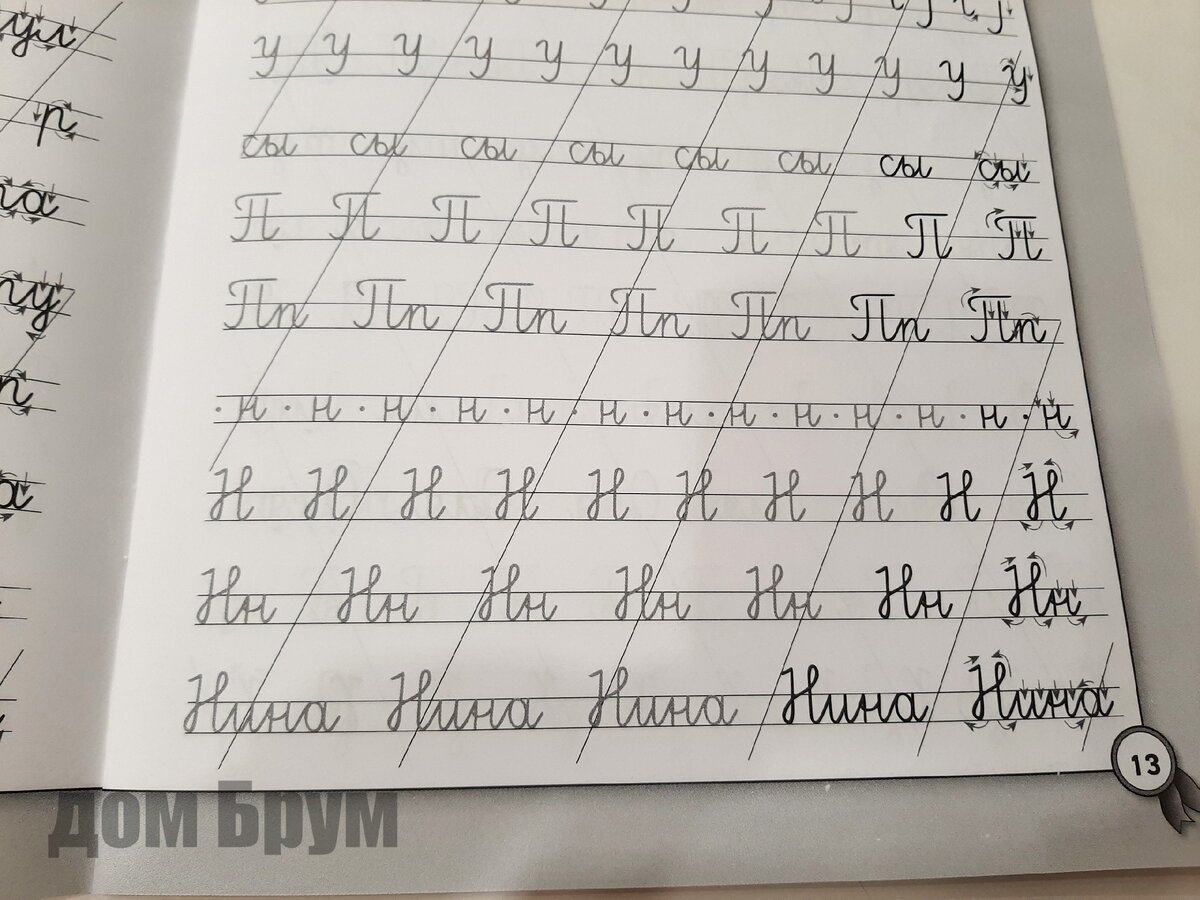 у у у у у у у у у у у у
сы сы сы сы сы сы сы сы
П П П П П П П П П
Пп Пп Пп Пп Пп Пп Пп
· н · н · н · н · н · н · н · н · н · н · н · н · н
Н Н Н Н Н Н Н Н Н Н
Нн Нн Нн Нн Нн Нн Нн
Нина Нина Нина Нина Нина
13
дом Брум